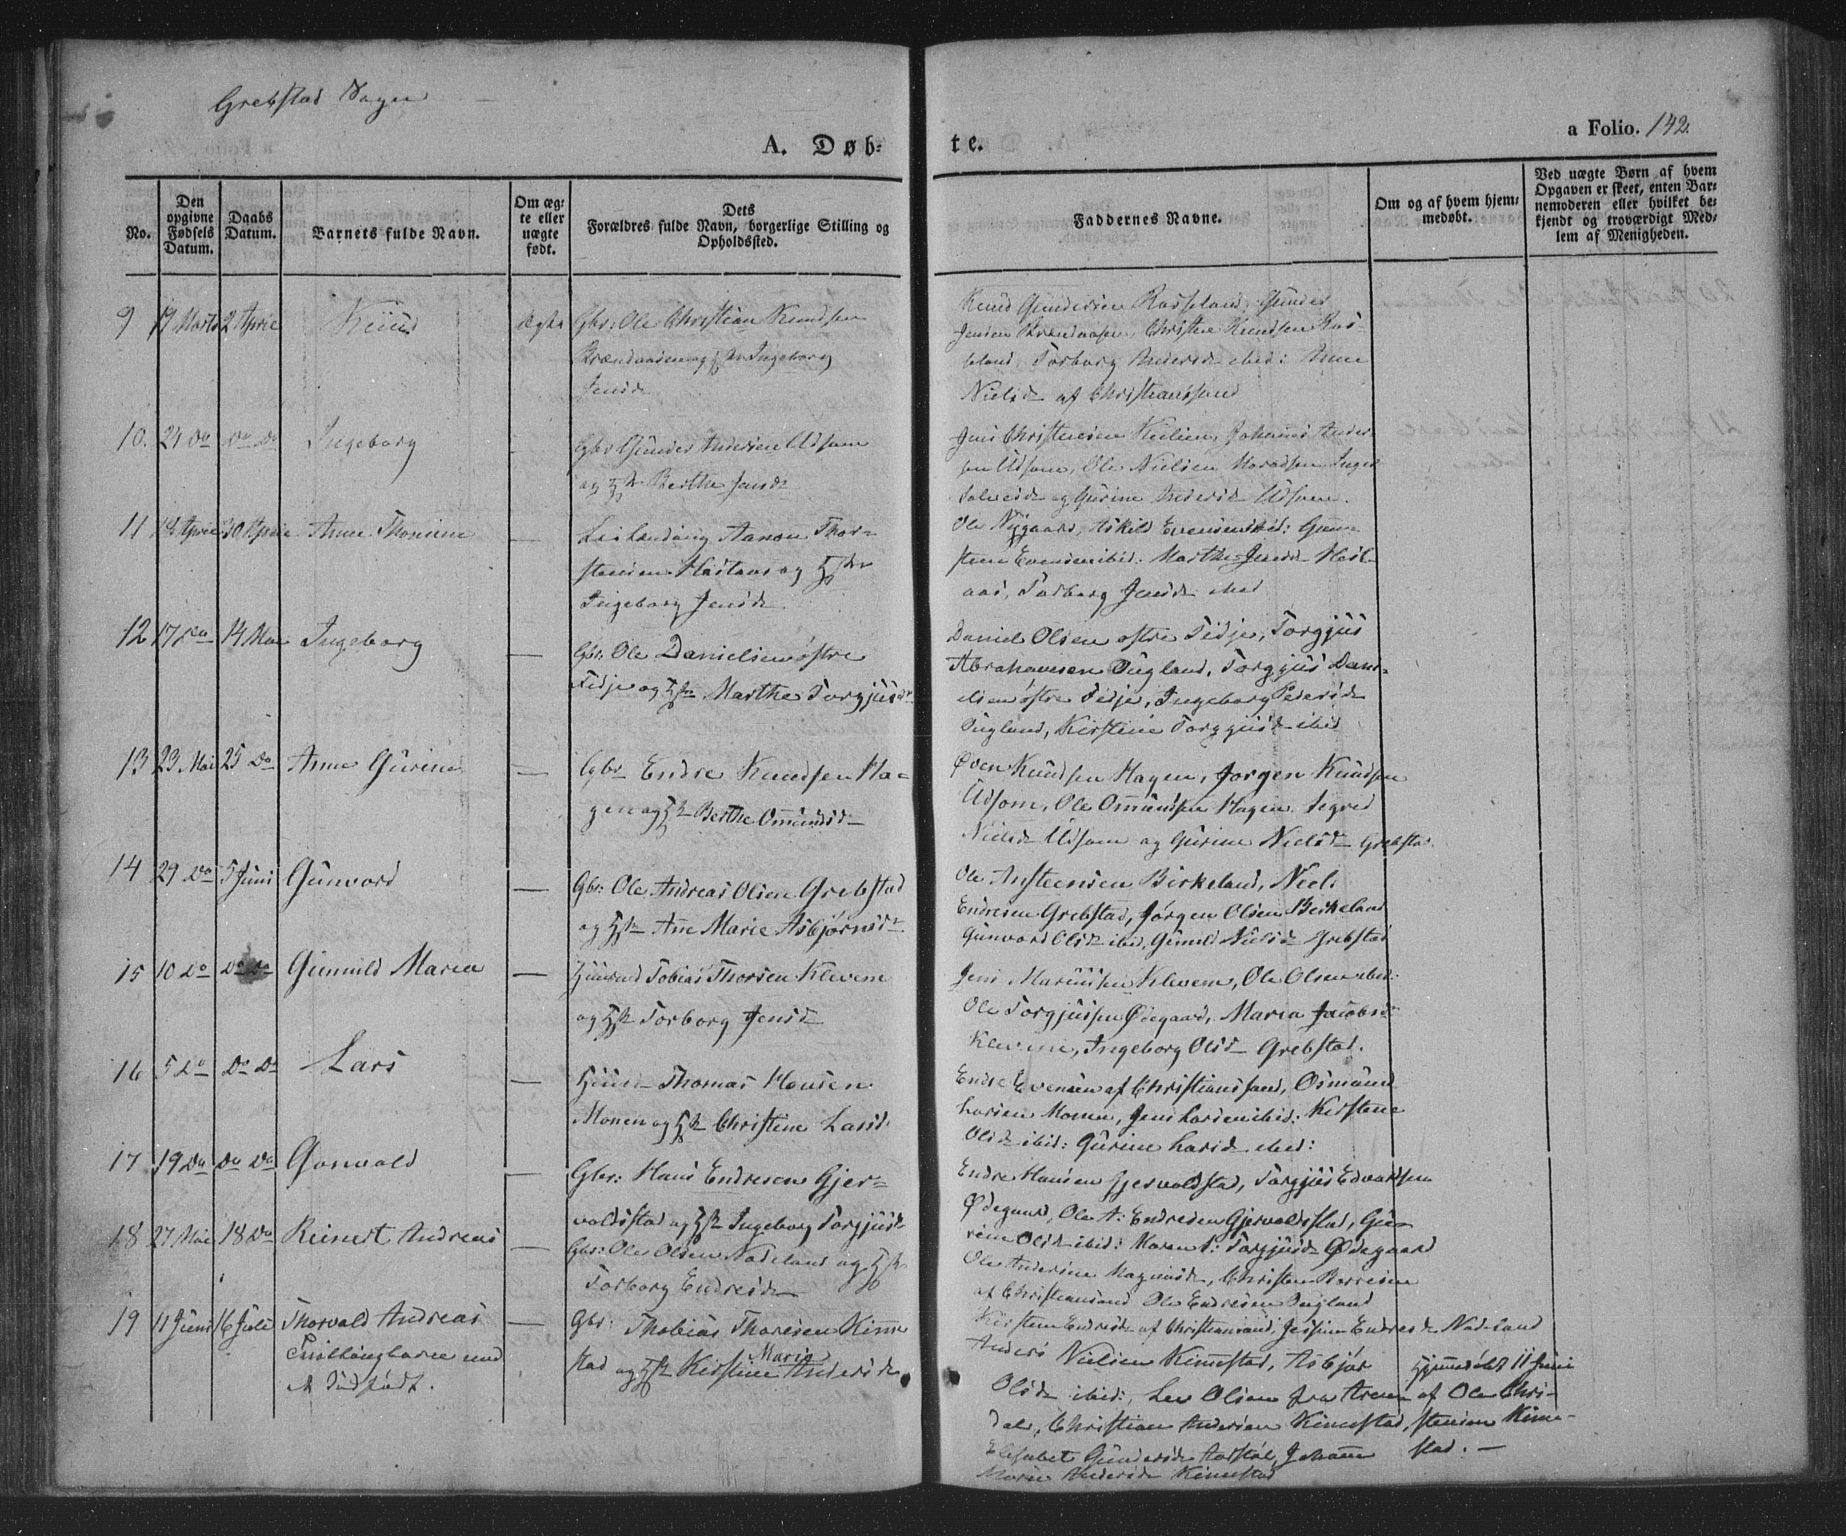 Grebstad Sogn
A. Døb-
te.
a Folio. 142.
No.
Den opgivne Fødsels Datum.
Daabs Datum.
Barnets fulde Navn.
Om ægte eller uægte født.
Dets
Forældres fulde Navn, borgerlige Stilling og
Opholdssted.
Faddernes Navne.
Om og af hvem hjemmedøbt.
Ved uægte Børn af hvem
Opgaven er skeet, enten Bar-
nemoderen eller hvilket be-
kjendt og troværdigt Med-
lem af Menigheden.
9 19 Marts 2 April Knud Ægte Gbr: Ole Christian Knudsen
og Hstr Ingeborg
Jensd
Knud Gundersen Rosseland, Gunder
Jensen Christen Knudsen Ros-
seland, Torborg Andersd ibid: Anne
Nielsd af Christianssand
10. 24 Do Do Do Ingeborg Gbr Gunder Andersen Udsom
og Hstr Berthe Jensd
Jens Christensen Johannes Ander-
sen Udsom, Ole Nielsen
og Gurine Andersd Udsom.
11 18 April 30 April Anne Thomine — Aanon Thor-
stensen og Hstr
Ingeborg Jensd
Ole Nygaard, Askild Evensen ibid: Gun-
sten Evensen ibid: Marthe Jensd
Torborg Jensd ibid
12 17 Do 14 Mai Ingeborg — Gbr: Ole Danielsen østre
Tidje og Hstr Marthe Torgjusd
Daniel Olsen østre Tidje, Torgjus
Abrahamsen Fugland, Torgjus Dani-
elsen østre Tidje, Ingeborg Pedersd
Fugland, Kirstine Torgjusd ibid
13 23 Mai 25 Do Anne Gurine — Gbr Endre Knudsen Ha-
gen og Hstr Berthe Ommundsd
Øven Knudsen Hagen, Jørgen Knudsen
Udsom, Ole Ommundsen Hagen. Segred
Nielsd Udsom og Gurine Nielsd Grebstad
14 29 Do 5 Juni Gunvord — Gbr: Ole Andreas Olsen Grebstad
og Hstr Ane Marie Asbjørnsd
Ole Ansteensen Birkeland, Niels
Endresen Grebstad, Jørgen Olsen Birkeland
Gunvord Olsd ibid, Gunild Nielsd Grebstad
15 10 Do Do Do Gunnild Maria — Huusmd Tobias Thorsen Klevene
og Hstr Torborg Jensd
Jens Klevene, Ole Olsen ibid.
Ole Torgjussen Ødegaard, Maria Jacobsd
Klevene, Ingeborg Olsd Grebstad.
16 5 Do Do Do Lars — Huusmd Thomas Hansen
Monen og Hstr Christine Larsd
Endre Evensen af Christianssand, Osmund
Larsen Monen, Jens Larsen ibid: Kirstene
Olsd ibid: Gurine Larsd ibid:
17 19 Do Do Do Gonvald — Gbr: Hans Endresen Gjer-
voldsstad og Hstr Ingeborg Torgjusd
Endre Hansen Gjervoldstad, Torgjus Edvardsen
Ødegaard, Ole A: Endresen Gjervoldsstad, Gu-
rine Olsd ibid: Maren T: Torgjusd Ødegaard
18 27 Mai 18 Do Reinert Andreas — Gbr: Ole Olsen Nodeland og Hstr
Torborg Endresd
Ole Andersen Christen
af Christianssand Ole Endresen Fugland
Kirsten Endresd af Christianssand, Endresd Nodeland
19 11 Juni 16 Juli Thorvald Andreas
Tvillingbarn
Dødfødt.
— Gbr: Thobias Thoresen Kime-
stad og Hstr Kirstine Maria Andersd
Anders Nielsen Kimestad, Asbjør
Olsd ibid: Lev Olsen fra Aren-
dal, Christian Andersen Kimestad,
Elisabet Gundersd Johanne
Marie Andersd Kimestad
Hjemmedøbt 11 Juni
af Ole Chri-
stensen Kime-
stad. —